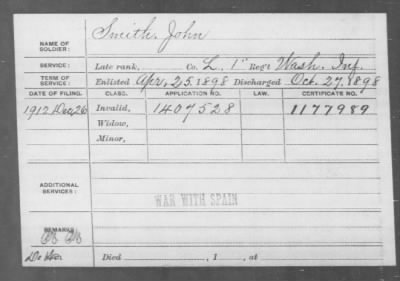 Smith, John
NAME OF SOLDIER:
SERVICE: Late rank, Co. L, 1" Reg't Wash. Inf.
TERM OF SERVICE: Enlisted Apr. 25, 1898 Discharged Oct. 27, 1898
DATE OF FILING. CLASS. APPLICATION NO. LAW. CERTIFICATE NO.
1912 Dec 26 Invalid, 1407528 1177989
Widow,
Minor,
ADDITIONAL SERVICES:
WAR WITH SPAIN
REMARKS
Died , 1 , at